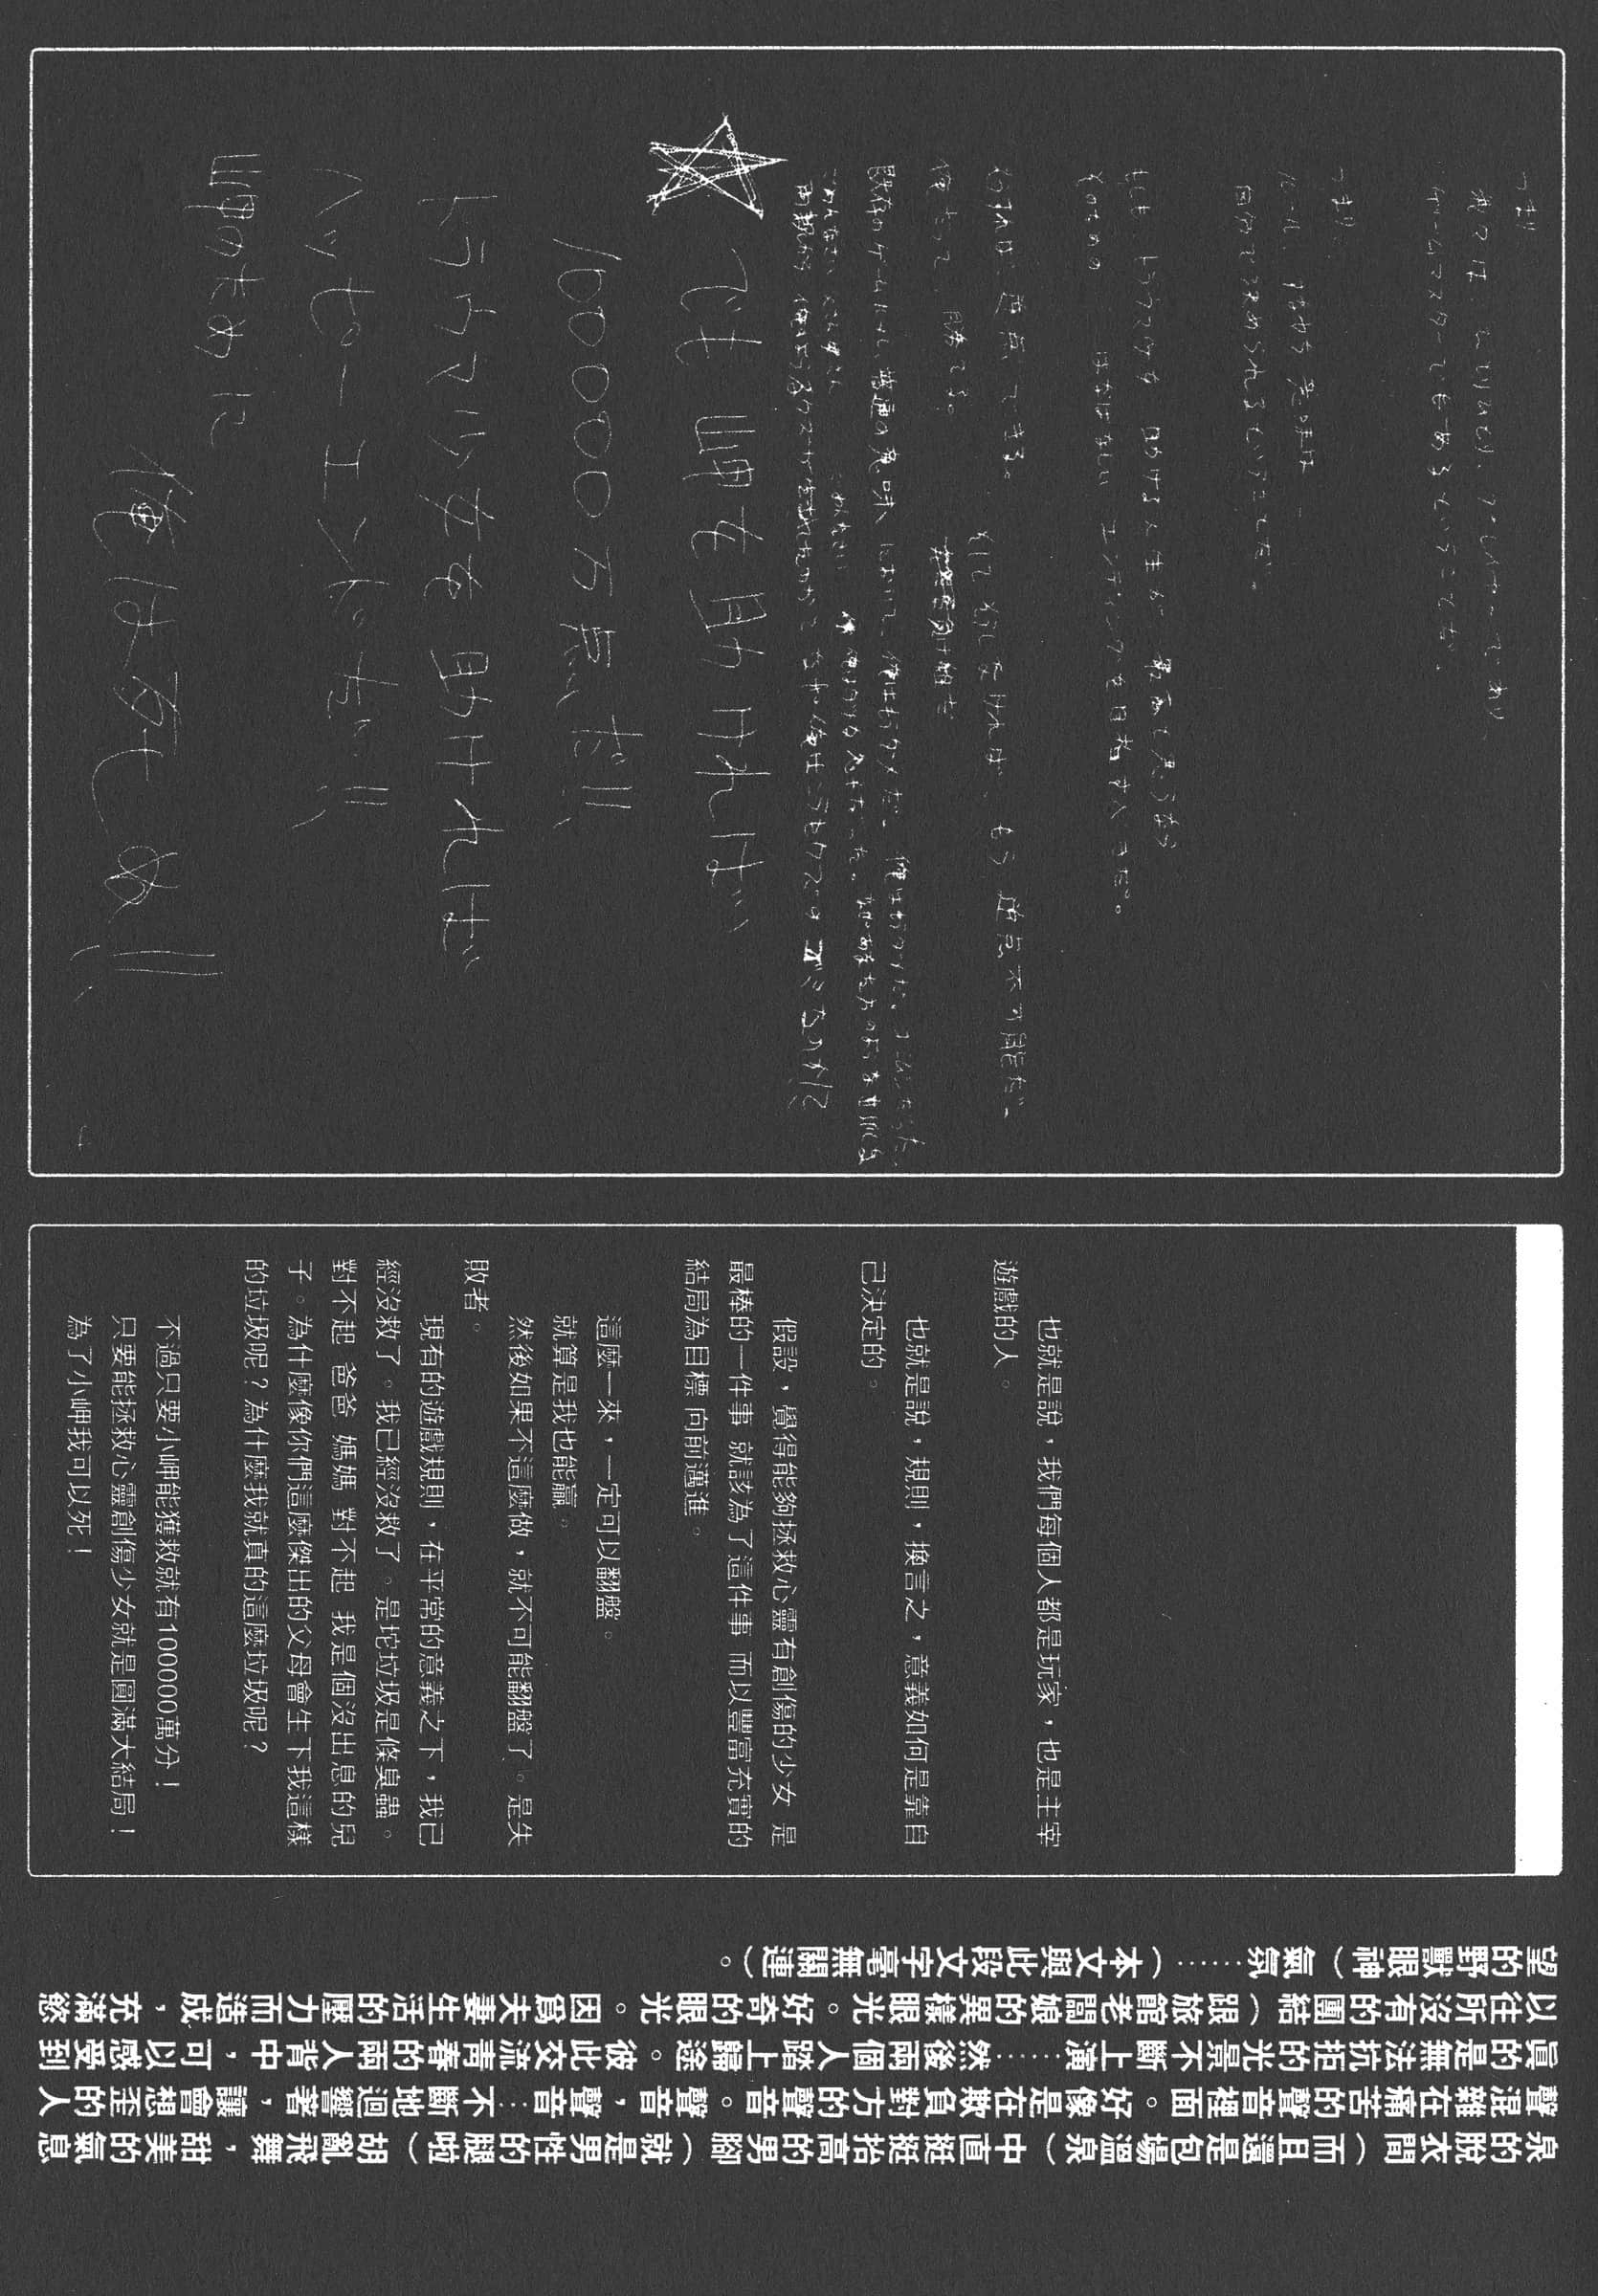 つまり
我々は、ひとりひとり、プレイヤーであり、
ゲームマスターでもあるということだ。
つまり、
自分で決められるということだ。
もしも トラウマ少女を 助ける人生が 最高と思うなら
そのための すばらしい エンディングを目指すべきだ。
そうすれば、逆点できる。
俺だって、勝てる。
そして そうしなければ、もう 逆点不可能だ。
でも岬を助ければ
100000万点だ!!
トラウマ少女を助ければ
ハッピーエンドだ!!
岬のために
俺は死ぬ!!
也就是說，我們每個人都是玩家，也是主宰
遊戲的人。
也就是說，規則，換言之，意義如何是靠自
己決定的。
假設，覺得能夠拯救心靈有創傷的少女 是
最棒的一件事 就該為了這件事 而以豐富充實的
結局為目標 向前邁進。
這麼一來，一定可以翻盤。
就算是我也能贏。
然後如果不這麼做，就不可能翻盤了。是失
敗者。
現有的遊戲規則，在平常的意義之下，我已
經沒救了。我已經沒救了。是坨垃圾是條臭蟲。
對不起 爸爸 媽媽 對不起 我是個沒出息的兒
子。為什麼像你們這麼傑出的父母會生下我這樣
的垃圾呢？為什麼我就真的這麼垃圾呢？
不過只要小岬能獲救就有100000萬分！
只要能拯救心靈創傷少女就是圓滿大結局！
為了小岬我可以死！
泉的脫衣間（而且還是包場溫泉）中直挺挺抬高的男腳（就是男性的腿啦）胡亂飛舞，甜美的氣息
聲混雜在痛苦的聲音裡面。好像是在欺負對方的聲音。聲音，聲音…不斷地迴響著，讓會想歪的人
真的是無法抗拒的光景不斷上演……然後兩個人踏上歸途。彼此交流青春的兩人背中，可以感受到
以往所沒有的團結（跟旅館老闆娘的異樣眼光。好奇的眼光。因為夫妻生活的壓力而造成，充滿慾
望的野獸眼神）氣氛……（本文與此段文字毫無關連）。